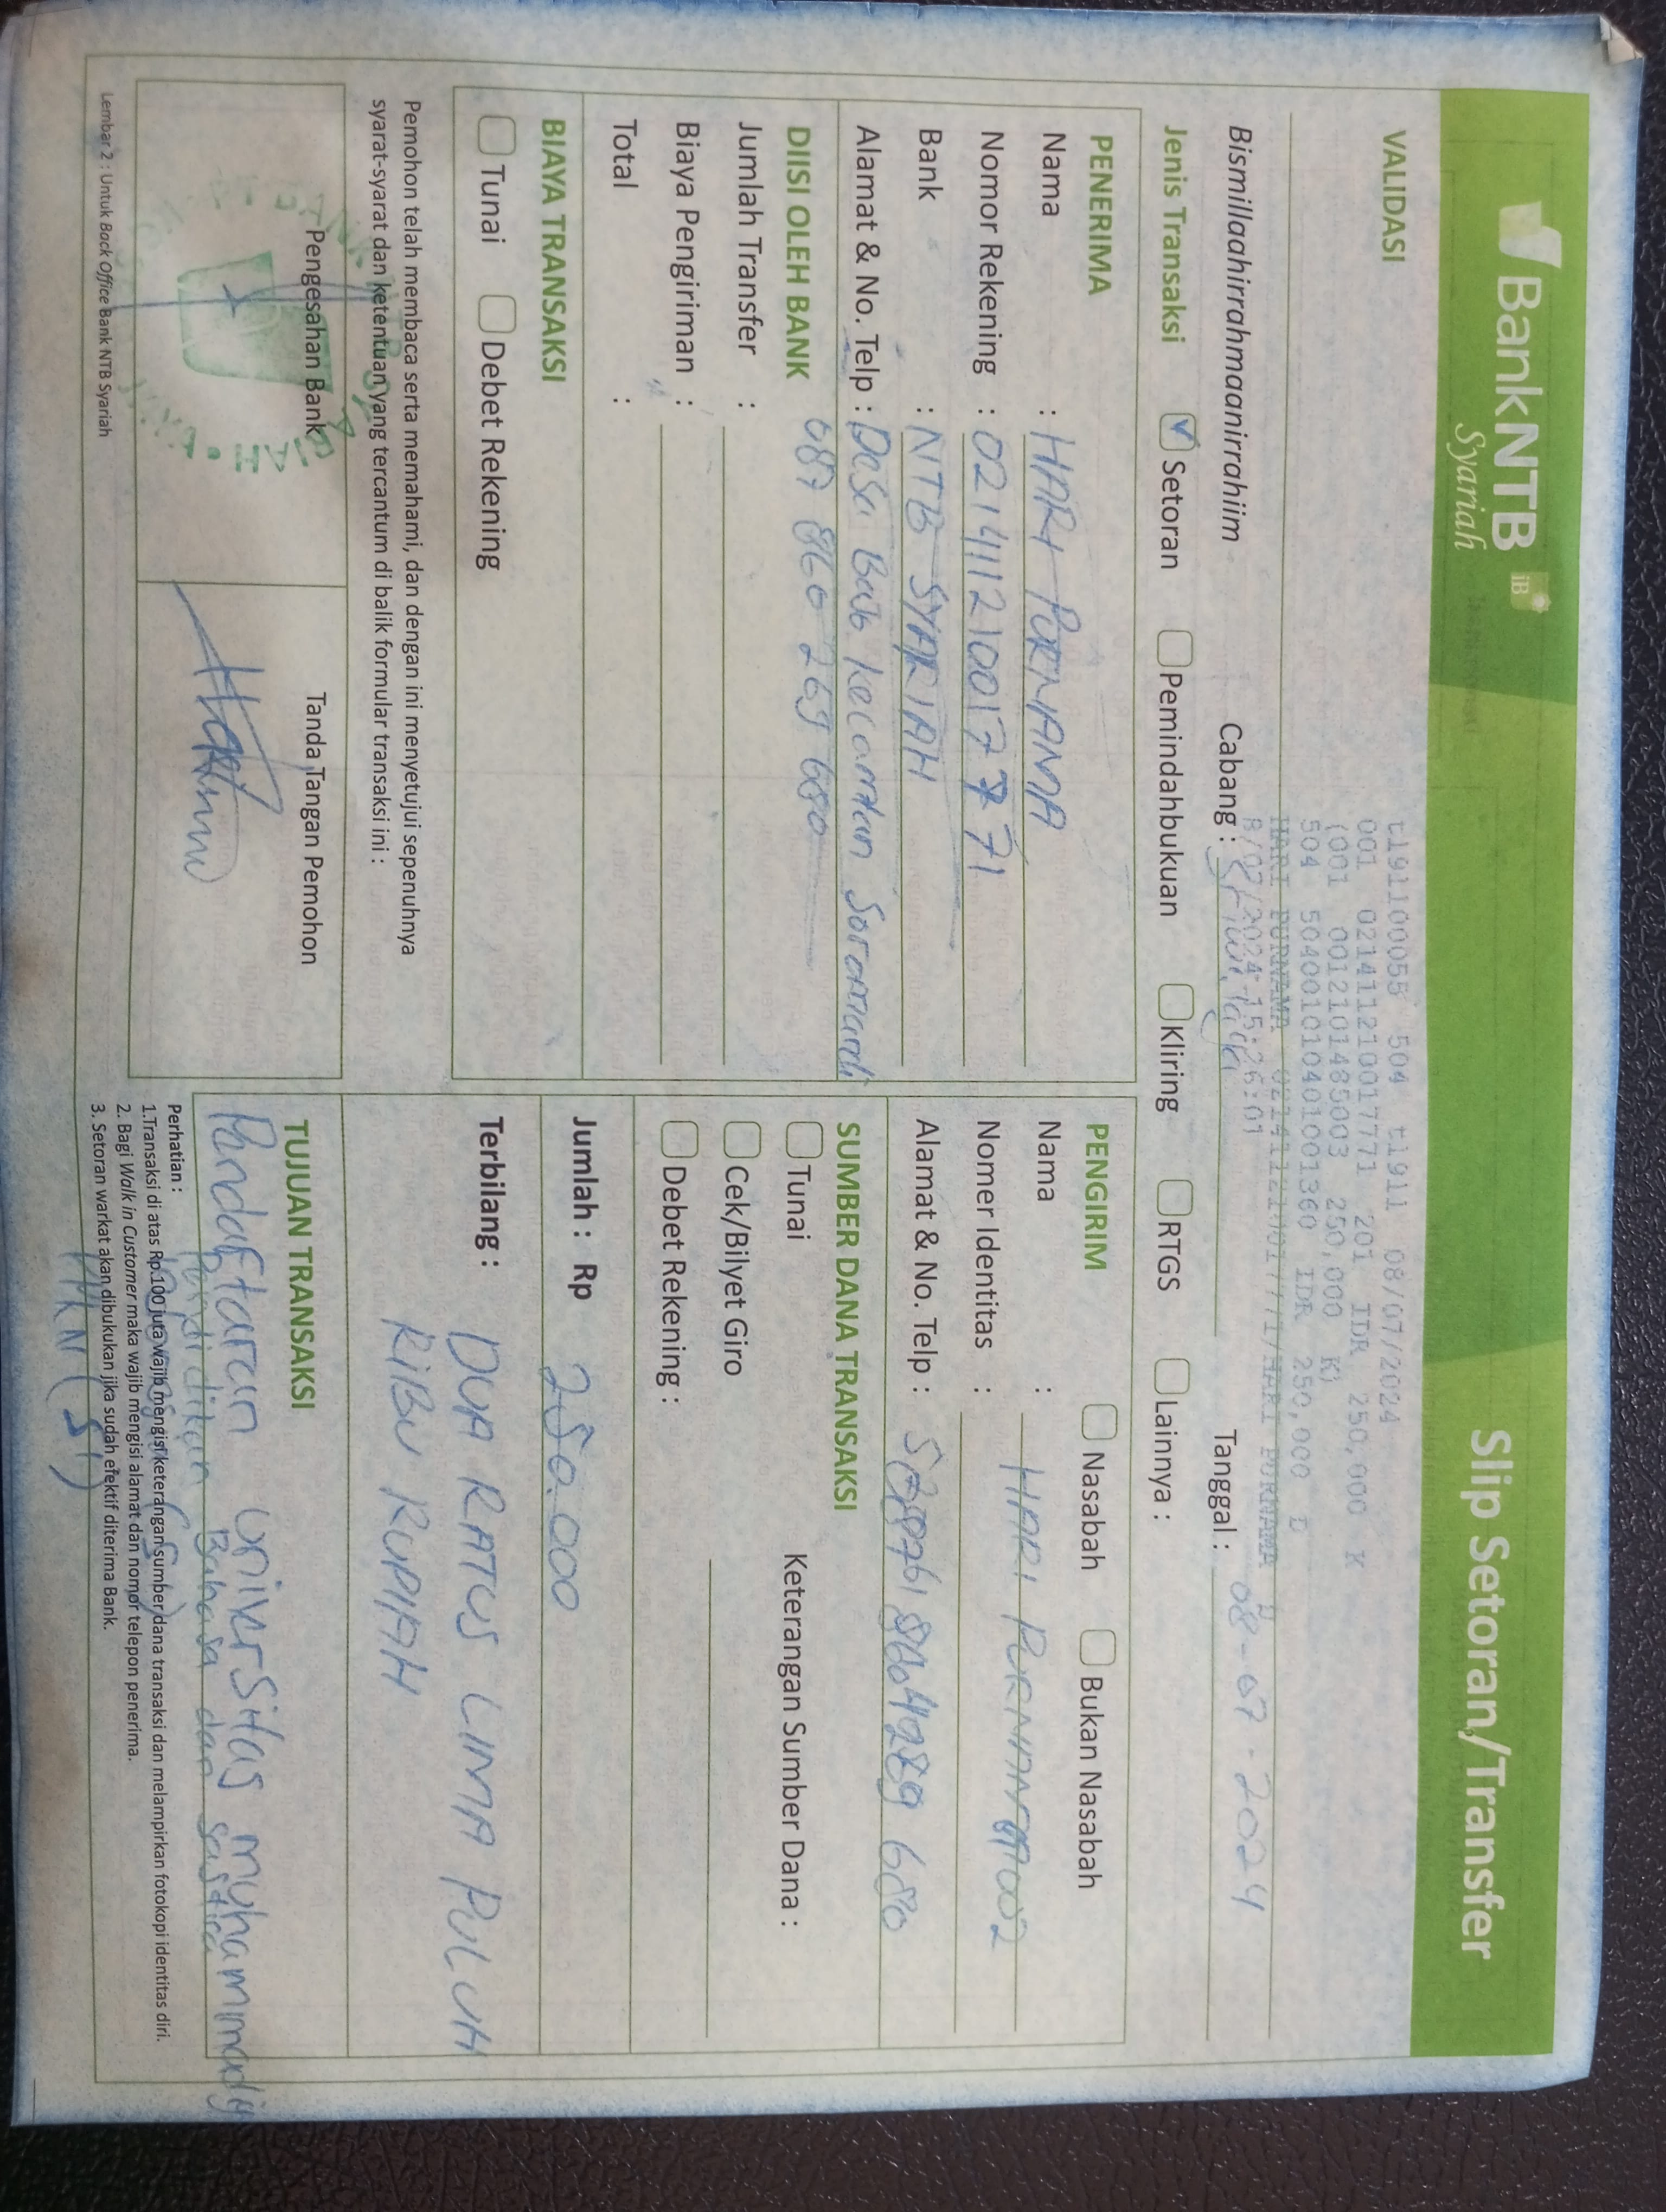 BankNTB iB
Syariah
Slip Setoran/Transfer
VALIDASI
t19110055 504 t1911 08/07/2024
001 021411210017771 201 IDR 250,000 K
(001 0012101485003 250,000 K)
504 504001010401001360 IDR 250,000 D
HARI PURNAMA 021411210017771/HARI PURNAMA D
8/07/2024 15:26:01
Bismillaahirrahmaanirrahiim
Cabang :
Tanggal : 08-07-2024
Jenis Transaksi
Setoran
Pemindahbukuan
Kliring
RTGS
Lainnya :
PENERIMA
Nama : HARI PURNAMA
Nomor Rekening : 0214112100177 71
Bank : NTB SYARIAH
Alamat & No. Telp : Desa Bab kecamatan Soromandi
DIISI OLEH BANK 087 860 269 680
Jumlah Transfer :
Biaya Pengiriman :
Total :
BIAYA TRANSAKSI
Tunai
Debet Rekening
Pemohon telah membaca serta memahami, dan dengan ini menyetujui sepenuhnya
syarat-syarat dan ketentuan yang tercantum di balik formular transaksi ini :
Pengesahan Bank
Tanda Tangan Pemohon
Lembar 2 : Untuk Back Office Bank NTB Syariah
PENGIRIM
Nasabah
Bukan Nasabah
Nama : HARI
Nomer Identitas :
Alamat & No. Telp :
SUMBER DANA TRANSAKSI
Tunai
Keterangan Sumber Dana :
Cek/Bilyet Giro
Debet Rekening :
Jumlah : Rp 250.000
Terbilang : DUA RATUS LIMA PULUH
RiBU RUPIAH
TUJUAN TRANSAKSI
Pendaftaran universitas
Pendidikan Bahasa dan sastra
Perhatian :
1.Transaksi di atas Rp.100 juta wajib mengisi keterangan sumber dana transaksi dan melampirkan fotokopi identitas diri.
2. Bagi Walk in Customer maka wajib mengisi alamat dan nomor telepon penerima.
3. Setoran warkat akan dibukukan jika sudah efektif diterima Bank.